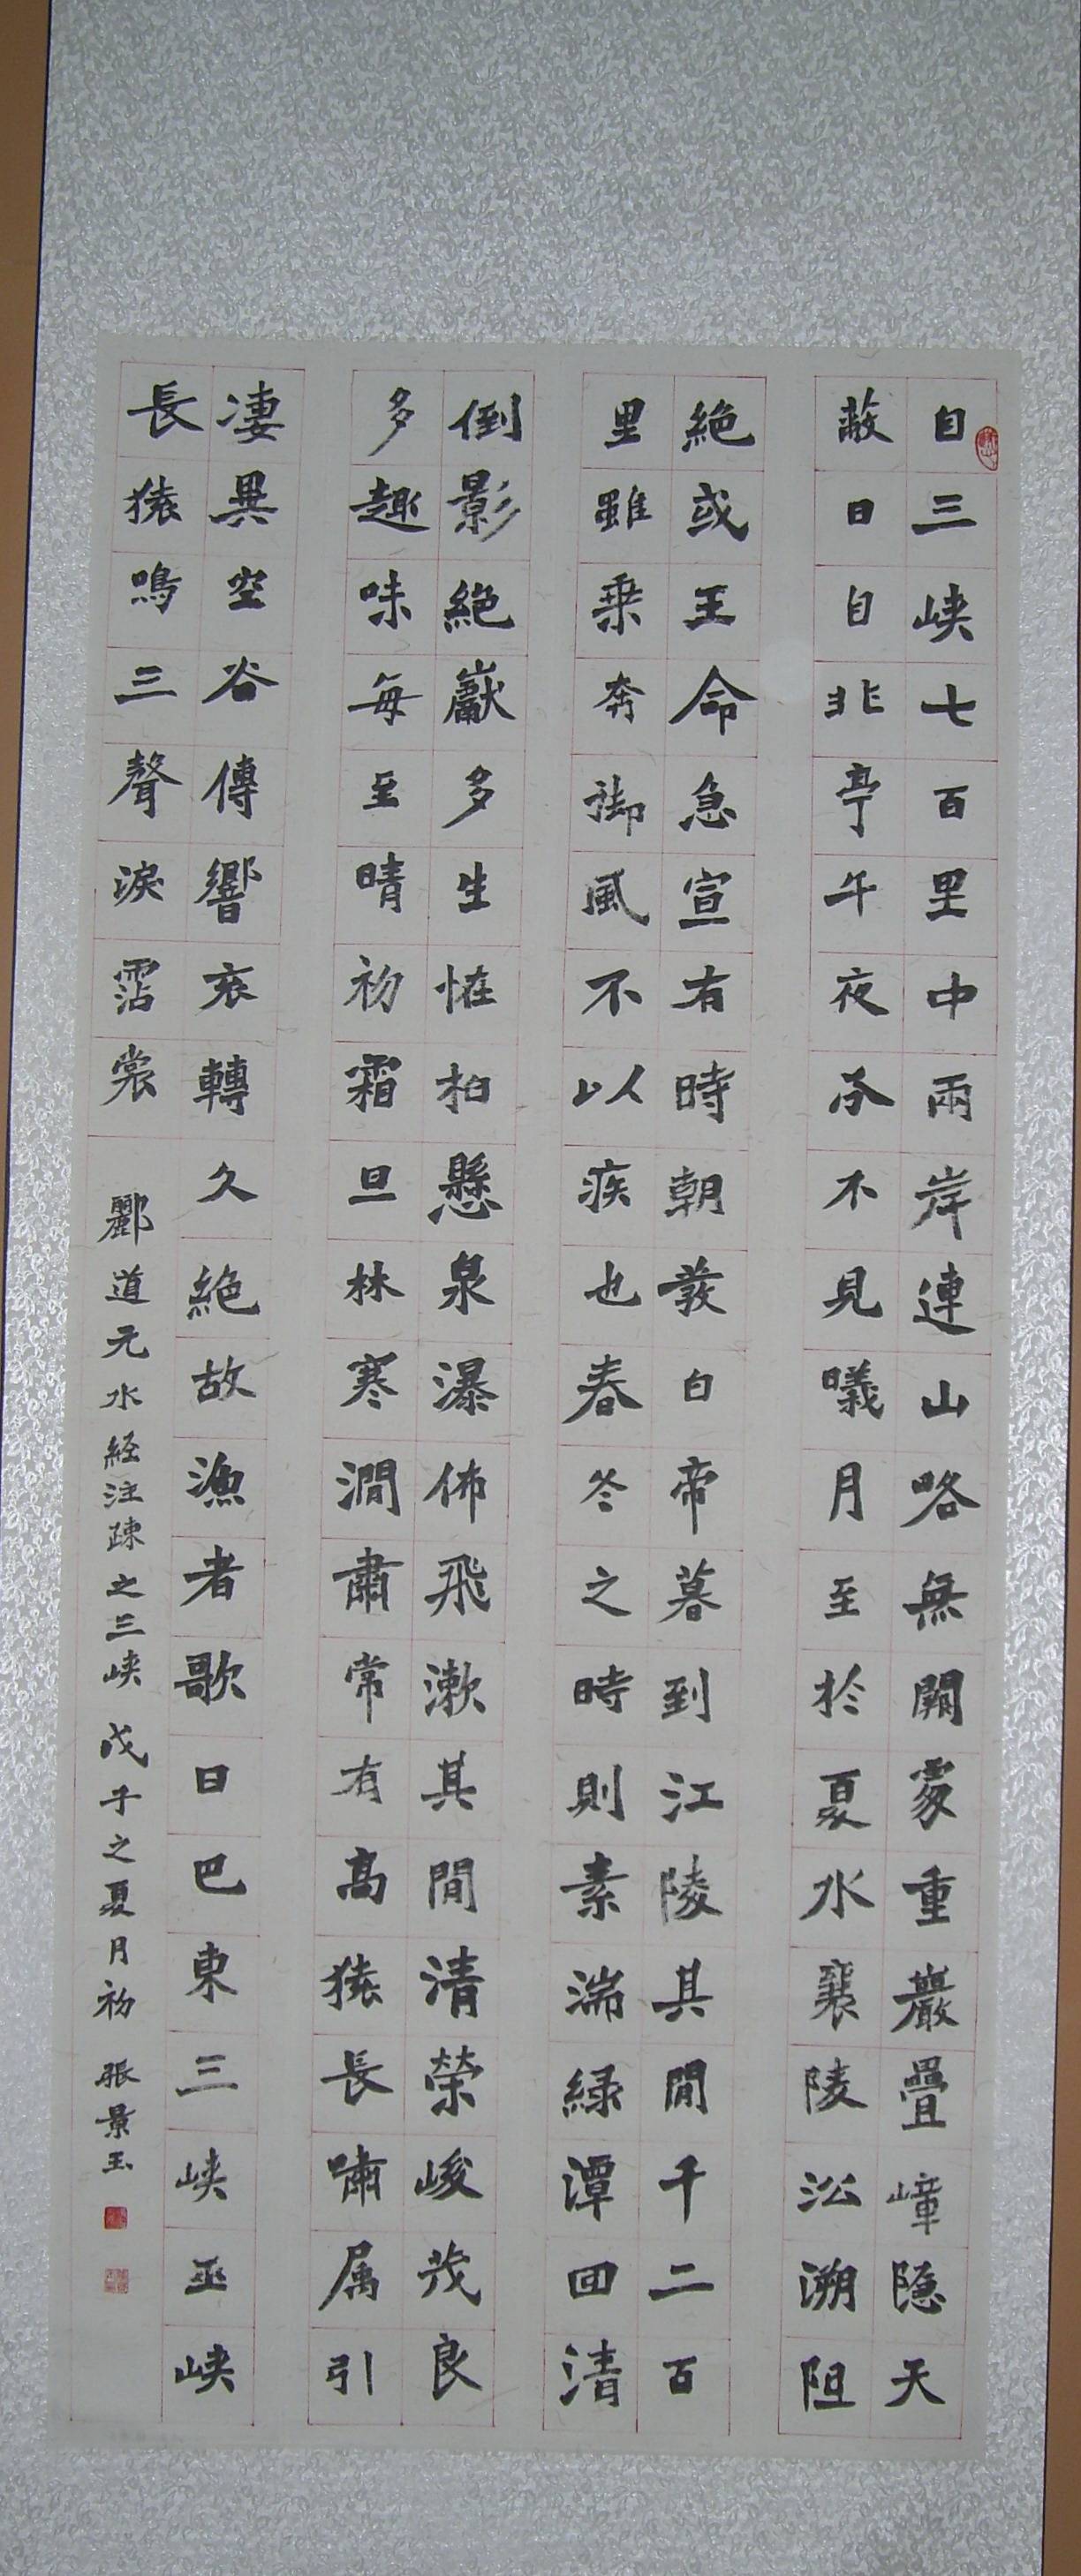 自三峽七百里中兩岸連山略無闕處重巖疊嶂隱天
蔽日自非亭午夜分不見曦月至於夏水襄陵沿溯阻
絶或王命急宣有時朝發白帝暮到江陵其間千二百
里雖乗奔御風不以疾也春冬之時則素湍緑潭回清
倒影絶巘多生怪柏懸泉瀑佈飛漱其間清榮峻茂良
多趣味每至晴初霜旦林寒澗肅常有高猿長嘯属引
凄異空谷傳響哀轉久絶故漁者歌曰巴東三峽巫峽
長猿鳴三聲淚霑裳
酈道元水経注疎之三峡 戊子之夏月初 張景玉